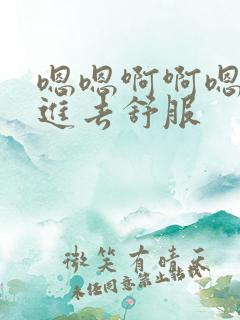 嗯嗯啊啊嗯
進去舒服
微笑有晴天
未经同意禁止转载